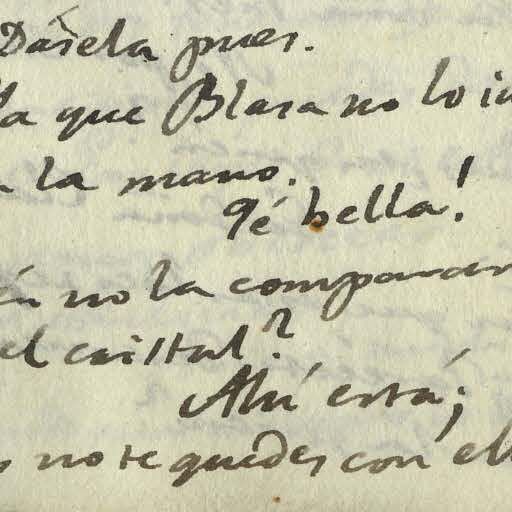 Dásela pues.
la que Blasa no lo in
la mano.
Qé bella!
én no la comparar
el cristal?
Ahí está;
s no te quedes con ell